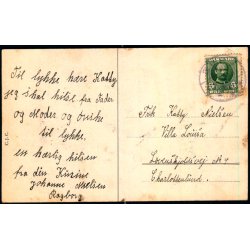 Til lykke kære Kathy
jeg skal hilse fra Fader
og Moder og ønske
til lykke.
en kærlig hilsen
fra din Kusine
Johanne Nielsen
Frk Kathy Nielsen
Villa Louisa
Charlottenlund
DANMARK
5